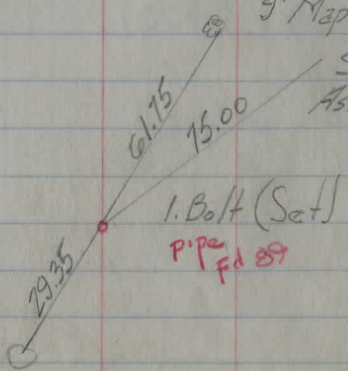 9" Map
61.75
75.00
1. Bolt (Set)
pipe
Fd 89
29.35